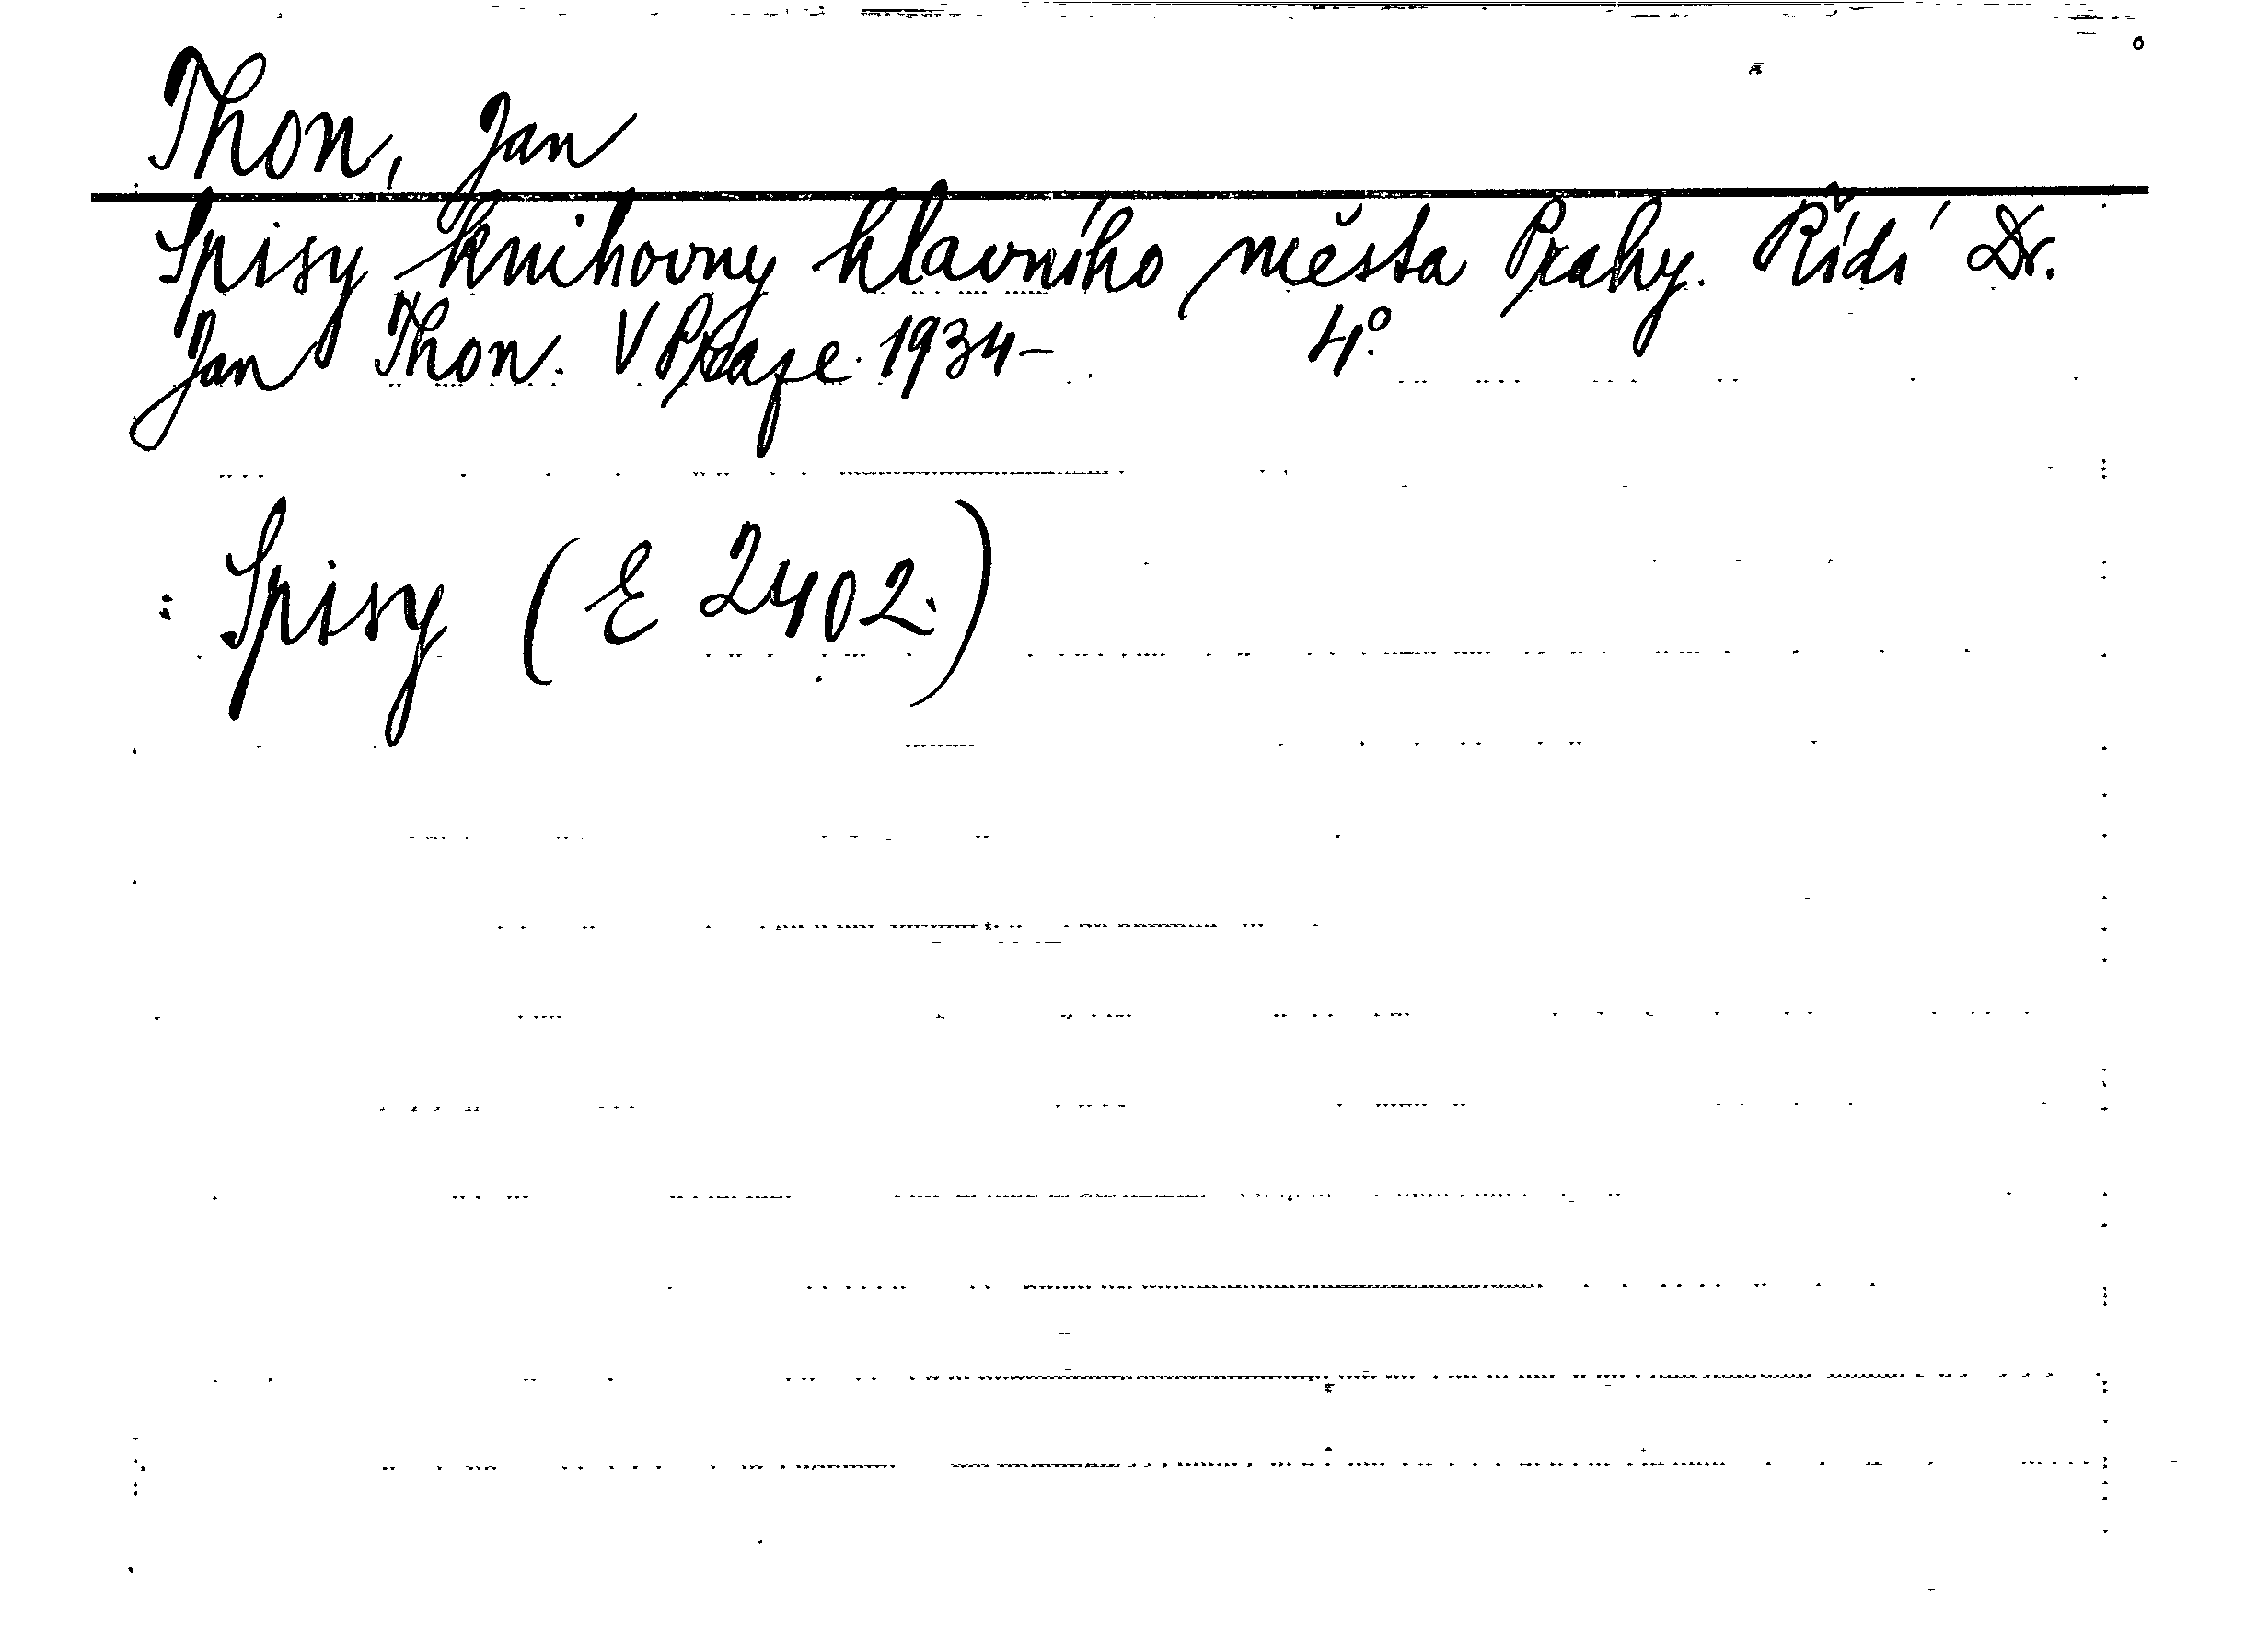 Thon, Jan
Spisy knihovny hlavního města Prahy. Řídí Dr.
Jan Thon. V Praze. 1934- 4°.
: Spisy (E 2402.)